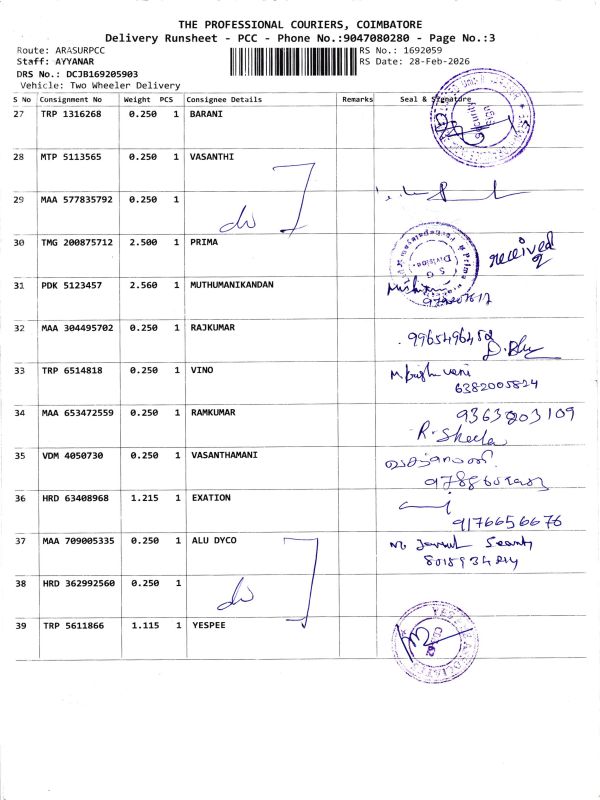 THE PROFESSIONAL COURIERS, COIMBATORE
Delivery Runsheet - PCC - Phone No.:9047080280 - Page No.:3
Route: ARASURPCC
RS No.: 1692059
Staff: AYYANAR
RS Date: 28-Feb-2026
DRS No.: DCJB169205903
Vehicle: Two Wheeler Delivery
S No Consignment No Weight PCS Consignee Details Remarks Seal & Signature
27 TRP 1316268 0.250 1 BARANI
28 MTP 5113565 0.250 1 VASANTHI
29 MAA 577835792 0.250 1
30 TMG 200875712 2.500 1 PRIMA received
31 PDK 5123457 2.560 1 MUTHUMANIKANDAN
32 MAA 304495702 0.250 1 RAJKUMAR
33 TRP 6514818 0.250 1 VINO
6382005824
34 MAA 653472559 0.250 1 RAMKUMAR 9363803109
R. Sheela
35 VDM 4050730 0.250 1 VASANTHAMANI
36 HRD 63408968 1.215 1 EXATION
9176656676
37 MAA 709005335 0.250 1 ALU DYCO
38 HRD 362992560 0.250 1
39 TRP 5611866 1.115 1 YESPEE